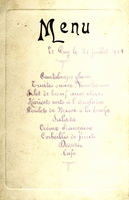 Menu
Le Puy le 24 juillet 19
Cantaloups glacés
Truites
Filet de boeuf aux
Haricots verts à l'anglaise
Poulets de Bresse à la broche
Salade
Crème Française
Corbeilles de fruits
Desserts
Café